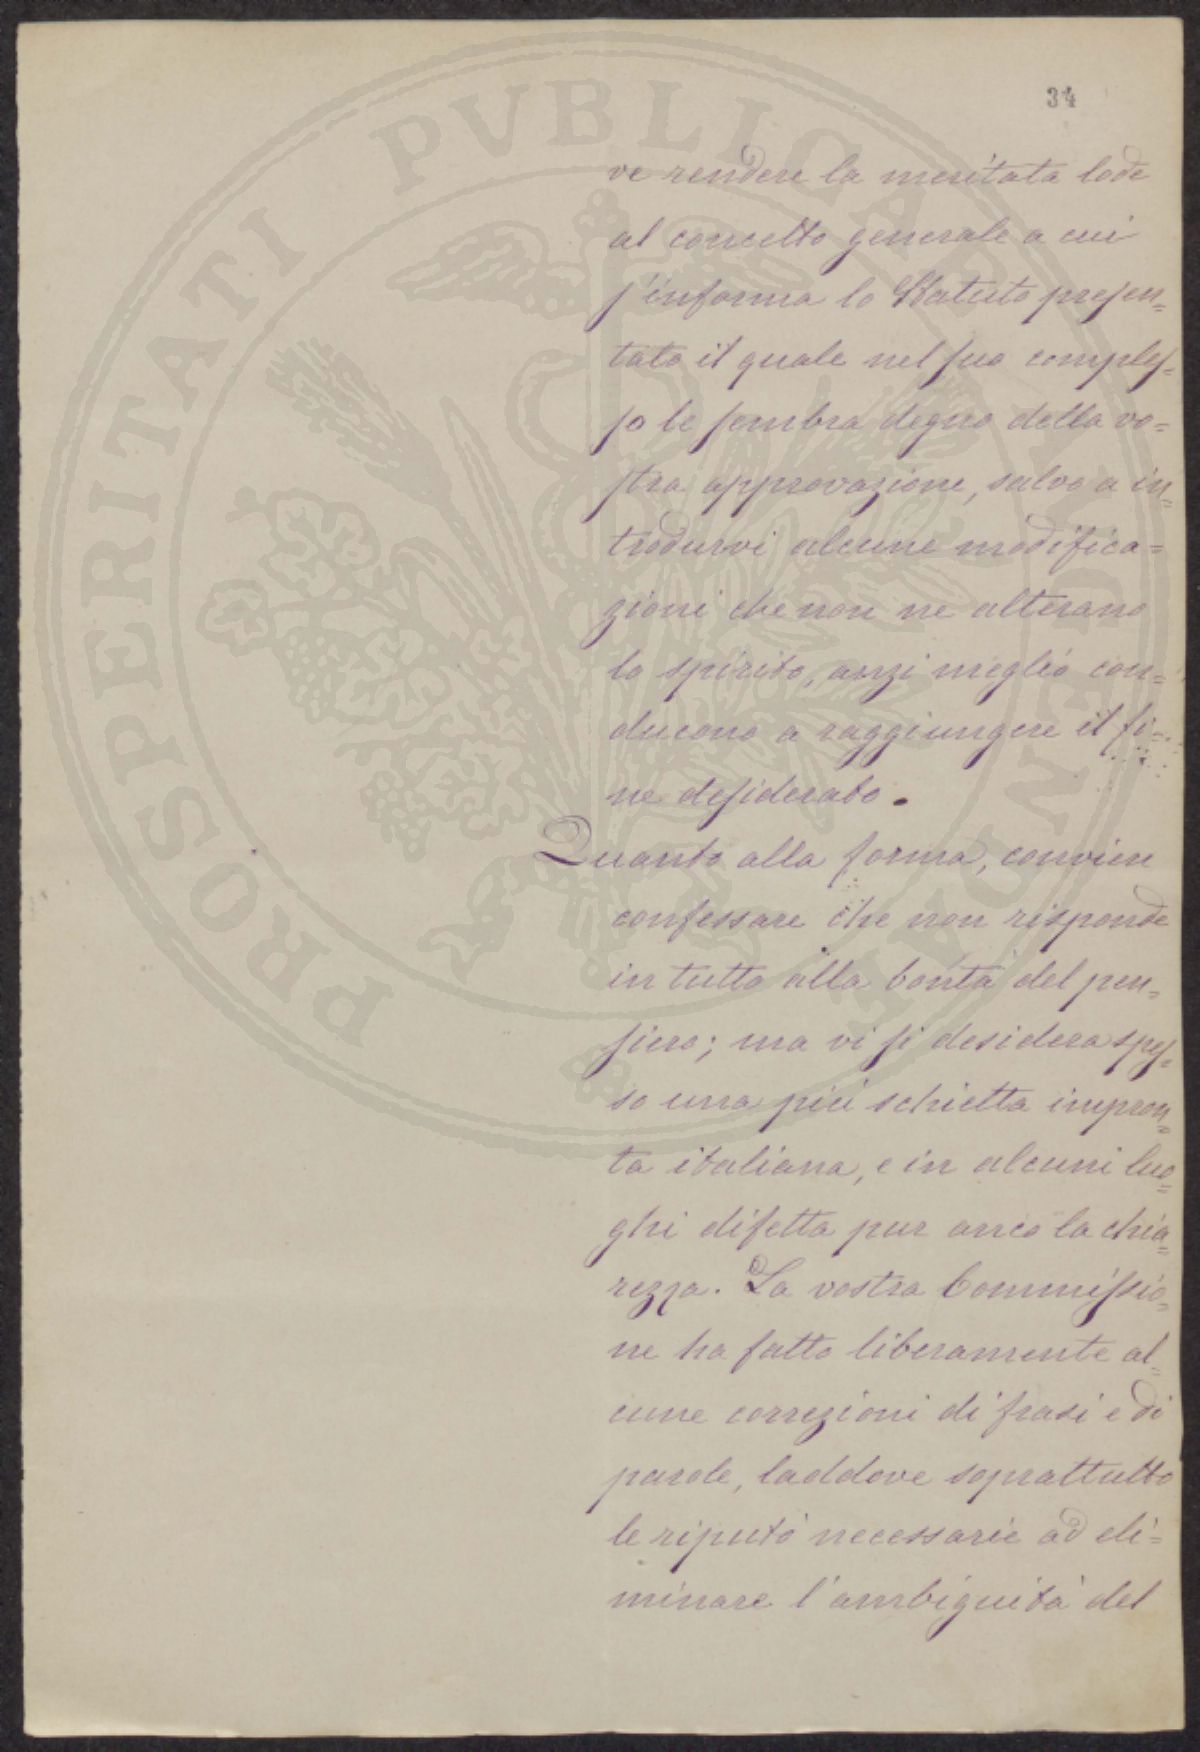 34
ve rendere la meritata lode
al concetto generale a cui
s'informa lo Statuto presen=
tato il quale nel suo comples=
so le sembra degno della vo=
stra approvazione, salvo a in=
trodurvi alcune modifica=
zioni che non ne alterano
lo spirito, anzi meglio con=
ducono a raggiungere il fi=
ne desiderato.
Quanto alla forma, conviene
confessare che non risponde
in tutto alla bontà del pen=
siero; ma vi si desidera spes=
so una più schietta impron=
ta italiana, e in alcuni luo=
ghi difetta pur anco la chia=
rezza. La vostra Commissio=
ne ha fatto liberamente al=
cune correzioni di frasi e di
parole, laddove soprattutto
le riputò necessarie ad eli=
minare l'ambiguità del
PROSPERITATI PVBLICAE AVGENDAE